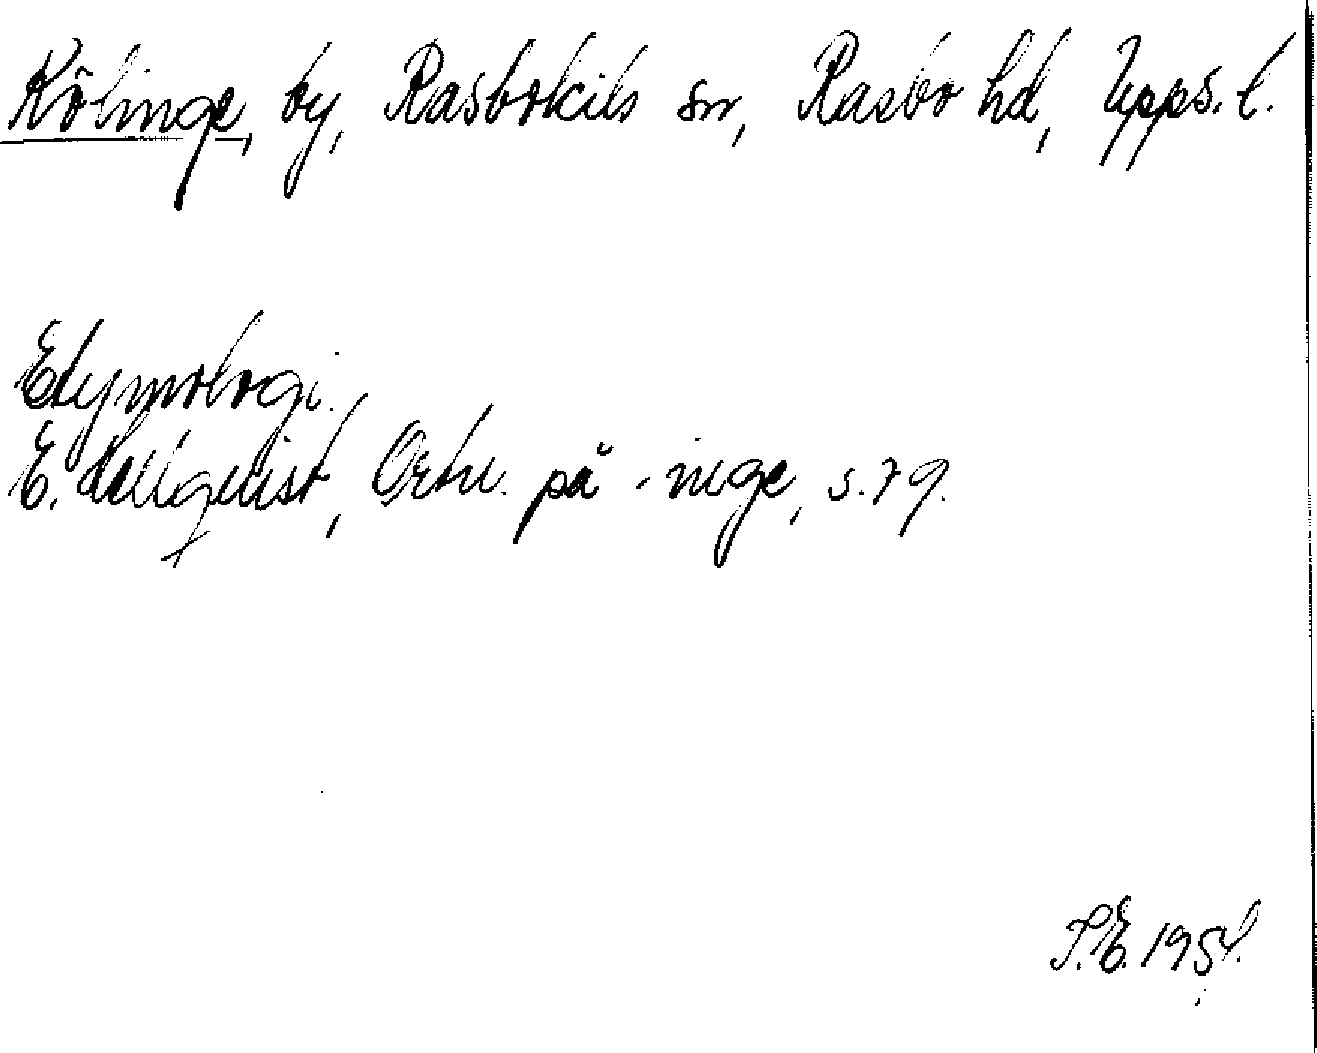 Kölinge, by, Rasbokils sn, Rasbo hd, Upps. l.
Etymologi.
E. Hellquist, Ortn. på -inge, s. 79.
S.E. 1954.